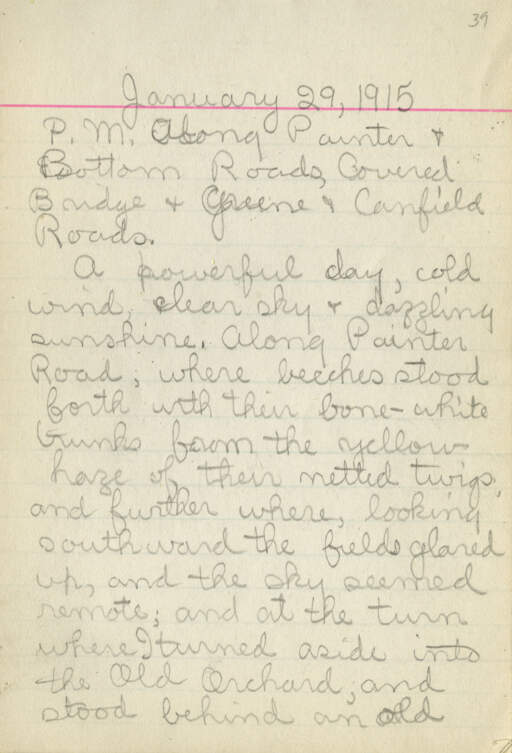 39
January 29, 1915
P. M. Along Painter &
Bottom Roads, Covered
Bridge & Greene & Canfield
Roads.
A powerful day, cold
wind, clear sky & dazzling
sunshine. Along Painter
Road, where beeches stood
forth with their bone-white
trunks from the yellow
haze of their netted twigs,
and further where, looking
southward the fields glared
up, and the sky seemed
remote; and at the turn
where I turned aside into
the Old Orchard, and
stood behind an old